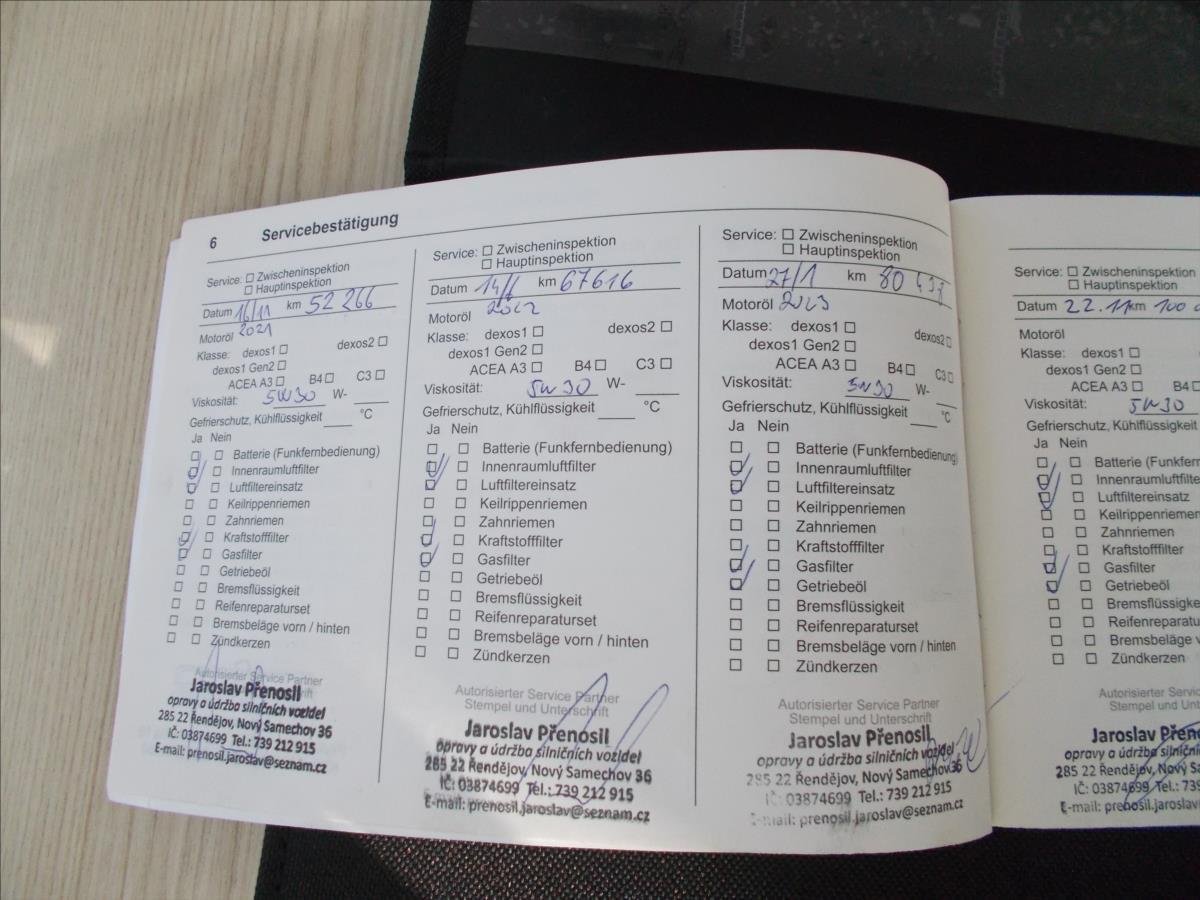 6 Servicebestätigung
Service: ☐ Zwischeninspektion
☐ Hauptinspektion
Datum 16/11 km 52 266
Motoröl 2021
Klasse: dexos1 ☐ dexos2 ☐
dexos1 Gen2 ☐
ACEA A3 ☐ B4 ☐ C3 ☐
Viskosität: 5W30 W-
Gefrierschutz, Kühlflüssigkeit °C
Ja Nein
Batterie (Funkfernbedienung)
Innenraumluftfilter
Luftfiltereinsatz
Keilrippenriemen
Zahnriemen
Kraftstofffilter
Gasfilter
Getriebeöl
Bremsflüssigkeit
Reifenreparaturset
Bremsbeläge vorn / hinten
Zündkerzen
Autorisierter Service Partner
Jaroslav Přenosil
opravy a údržba silničních vozidel
285 22 Řendějov, Nový Samechov 36
IČ: 03874699 Tel.: 739 212 915
E-mail: prenosil.jaroslav@seznam.cz
Service: ☐ Zwischeninspektion
☐ Hauptinspektion
Datum 14/6 km 67616
Motoröl 2022
Klasse: dexos1 ☐ dexos2 ☐
dexos1 Gen2 ☐
ACEA A3 ☐ B4 ☐ C3 ☐
Viskosität: 5W30 W-
Gefrierschutz, Kühlflüssigkeit °C
Ja Nein
Batterie (Funkfernbedienung)
Innenraumluftfilter
Luftfiltereinsatz
Keilrippenriemen
Zahnriemen
Kraftstofffilter
Gasfilter
Getriebeöl
Bremsflüssigkeit
Reifenreparaturset
Bremsbeläge vorn / hinten
Zündkerzen
Autorisierter Service Partner
Stempel und Unterschrift
Jaroslav Přenosil
opravy a údržba silničních vozidel
285 22 Řendějov, Nový Samechov 36
IČ: 03874699 Tel.: 739 212 915
E-mail: prenosil.jaroslav@seznam.cz
Service: ☐ Zwischeninspektion
☐ Hauptinspektion
Datum 27/1 km 80 438
Motoröl 2023
Klasse: dexos1 ☐ dexos2 ☐
dexos1 Gen2 ☐
ACEA A3 ☐ B4 ☐ C3 ☐
Viskosität: 5W30 W-
Gefrierschutz, Kühlflüssigkeit °C
Ja Nein
Batterie (Funkfernbedienung)
Innenraumluftfilter
Luftfiltereinsatz
Keilrippenriemen
Zahnriemen
Kraftstofffilter
Gasfilter
Getriebeöl
Bremsflüssigkeit
Reifenreparaturset
Bremsbeläge vorn / hinten
Zündkerzen
Autorisierter Service Partner
Stempel und Unterschrift
Jaroslav Přenosil
opravy a údržba silničních vozidel
285 22 Řendějov, Nový Samechov 36
IČ: 03874699 Tel.: 739 212 915
E-mail: prenosil.jaroslav@seznam.cz
Service: ☐ Zwischeninspektion
☐ Hauptinspektion
Datum 22.11 km 100
Motoröl
Klasse: dexos1 ☐
dexos1 Gen2 ☐
ACEA A3 ☐ B4
Viskosität: 5W30
Gefrierschutz, Kühlflüssigkeit
Ja Nein
Batterie (Funkfern
Innenraumluftfilte
Luftfiltereinsatz
Keilrippenriemen
Zahnriemen
Kraftstofffilter
Gasfilter
Getriebeöl
Bremsflüssigke
Reifenreparatur
Bremsbeläge vo
Zündkerzen
Autorisierter Service Pa
Stempel und Unters
Jaroslav Přeno
opravy a údržba silničn
285 22 Řendějov, Nový Sa
IČ: 03874699 Tel.: 739
E-mail: prenosil.jaroslav@s